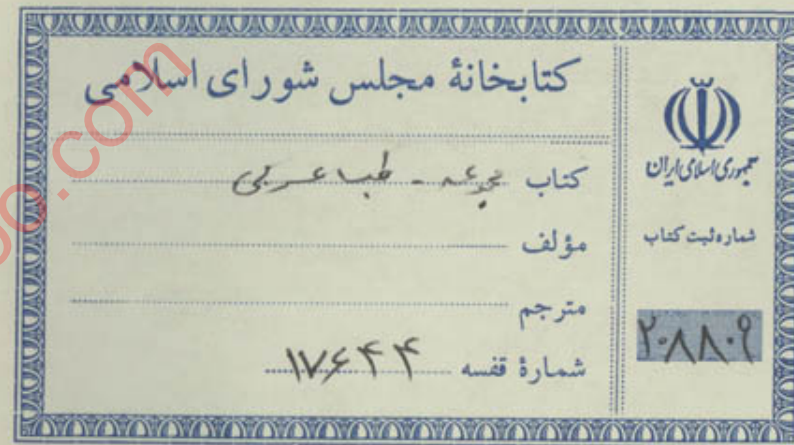 کتابخانهٔ مجلس شورای اسلامی
کتاب مجموعه - طب عربی
مؤلف
مترجم
شمارهٔ قفسه ۱۷۶۴۴
جمهوری اسلامی ایران
شماره ثبت کتاب
۲۰۸۸۰۹